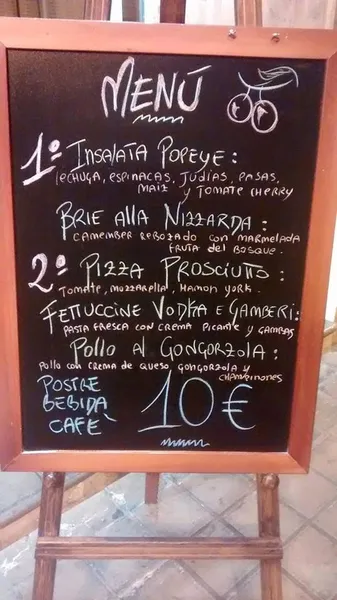 MENÚ
1º INSALATA POPEYE:
LECHUGA, ESPINACAS, JUDÍAS, PASAS,
MAIZ Y TOMATE CHERRY
BRIE ALLA NIZZARDA:
CAMEMBER REBOZADO CON MARMELADA
FRUTA DEL BOSQUE.
2º PIZZA PROSCIUTTO:
TOMATE, MOZZARELLA, HAMON YORK.
FETTUCCINE VODKA E GAMBERI:
PASTA FRESCA CON CREMA PICANTE Y GAMBAS
POLLO AL GONGORZOLA:
POLLO CON CREMA DE QUESO GONGORZOLA Y
CHAMPINONES
POSTRE
BEBIDA
CAFÈ
10€